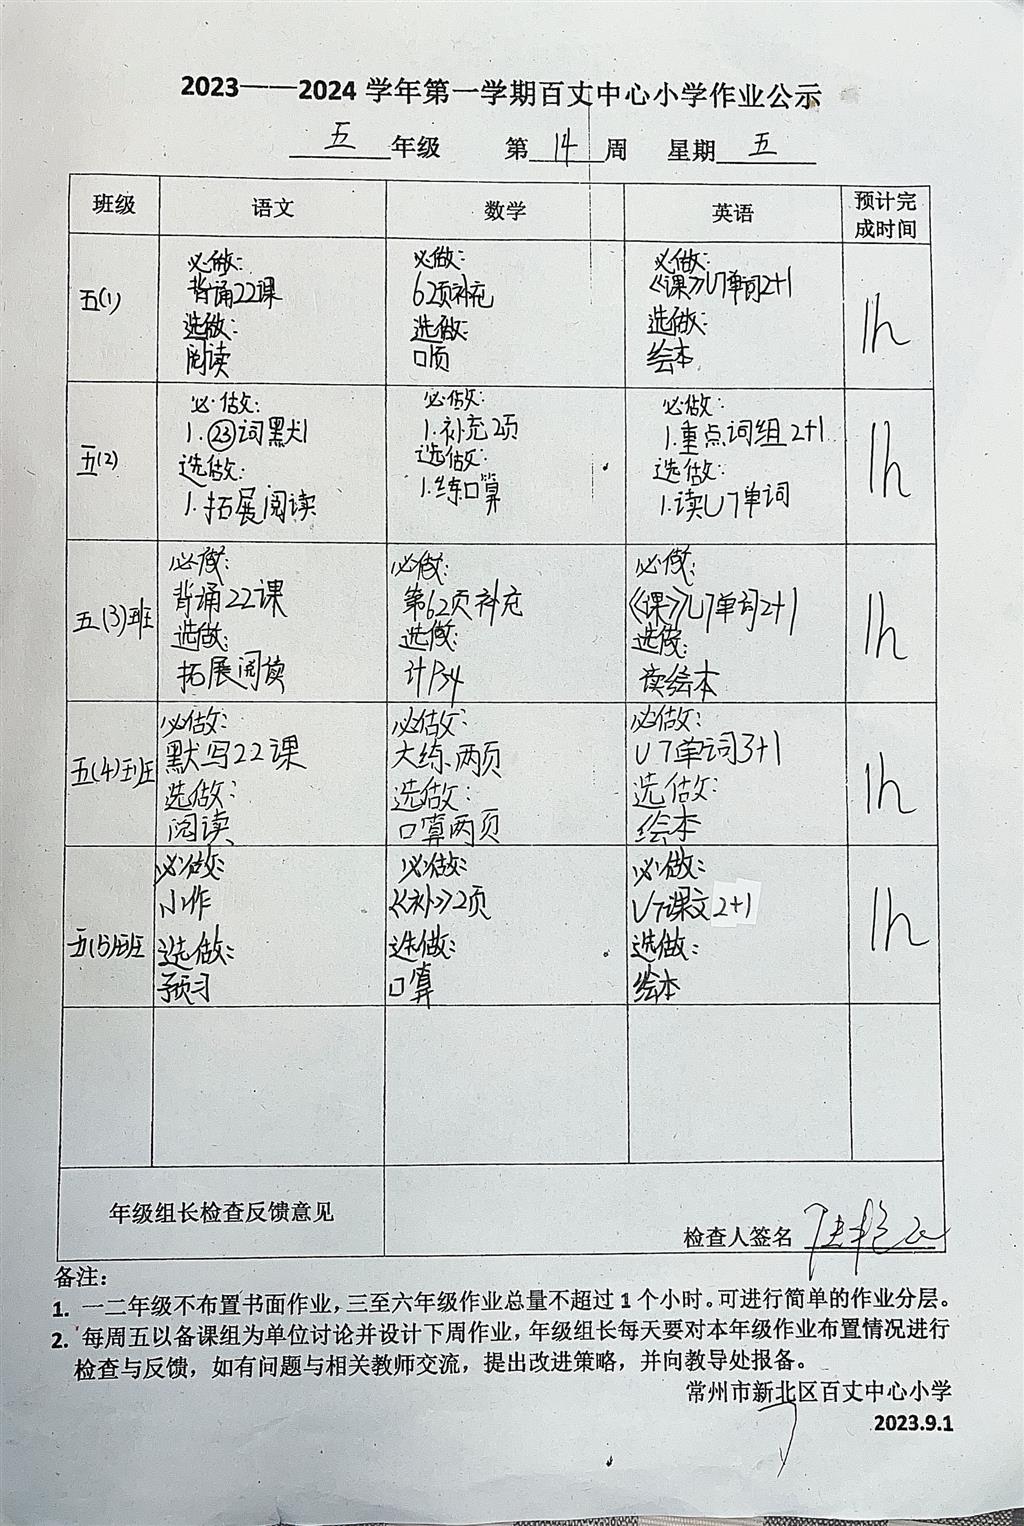 2023——2024 学年第一学期百丈中心小学作业公示
五年级 第14周 星期五
班级 语文 数学 英语 预计完成时间
五(1)
必做：
背诵22课
选做：
阅读
必做：
62页补充
选做：
口页
必做：
《课》U7单词2+1
选做：
绘本
1h
五(2)
必做：
1.㉓词默1
选做：
1.拓展阅读
必做：
1.补充2页
选做：
1.练口算
必做：
1.重点词组2+1
选做：
1.读U7单词
1h
五(3)班
必做：
背诵22课
选做：
拓展阅读
必做：
第62页补充
选做：
计P34
必做：
《课》U7单词2+1
选做：
读绘本
1h
五(4)班
必做：
默写22课
选做：
阅读
必做：
大练、两页
选做：
口算两页
必做：
U7单词3+1
选做：
绘本
1h
五(5)班
必做：
小作
选做：
预习
必做：
《补》2页
选做：
口算
必做：
U7课文2+1
选做：
绘本
1h
年级组长检查反馈意见
检查人签名
备注：
1. 一二年级不布置书面作业，三至六年级作业总量不超过1个小时。可进行简单的作业分层。
2. 每周五以备课组为单位讨论并设计下周作业，年级组长每天要对本年级作业布置情况进行
检查与反馈，如有问题与相关教师交流，提出改进策略，并向教导处报备。
常州市新北区百丈中心小学
2023.9.1